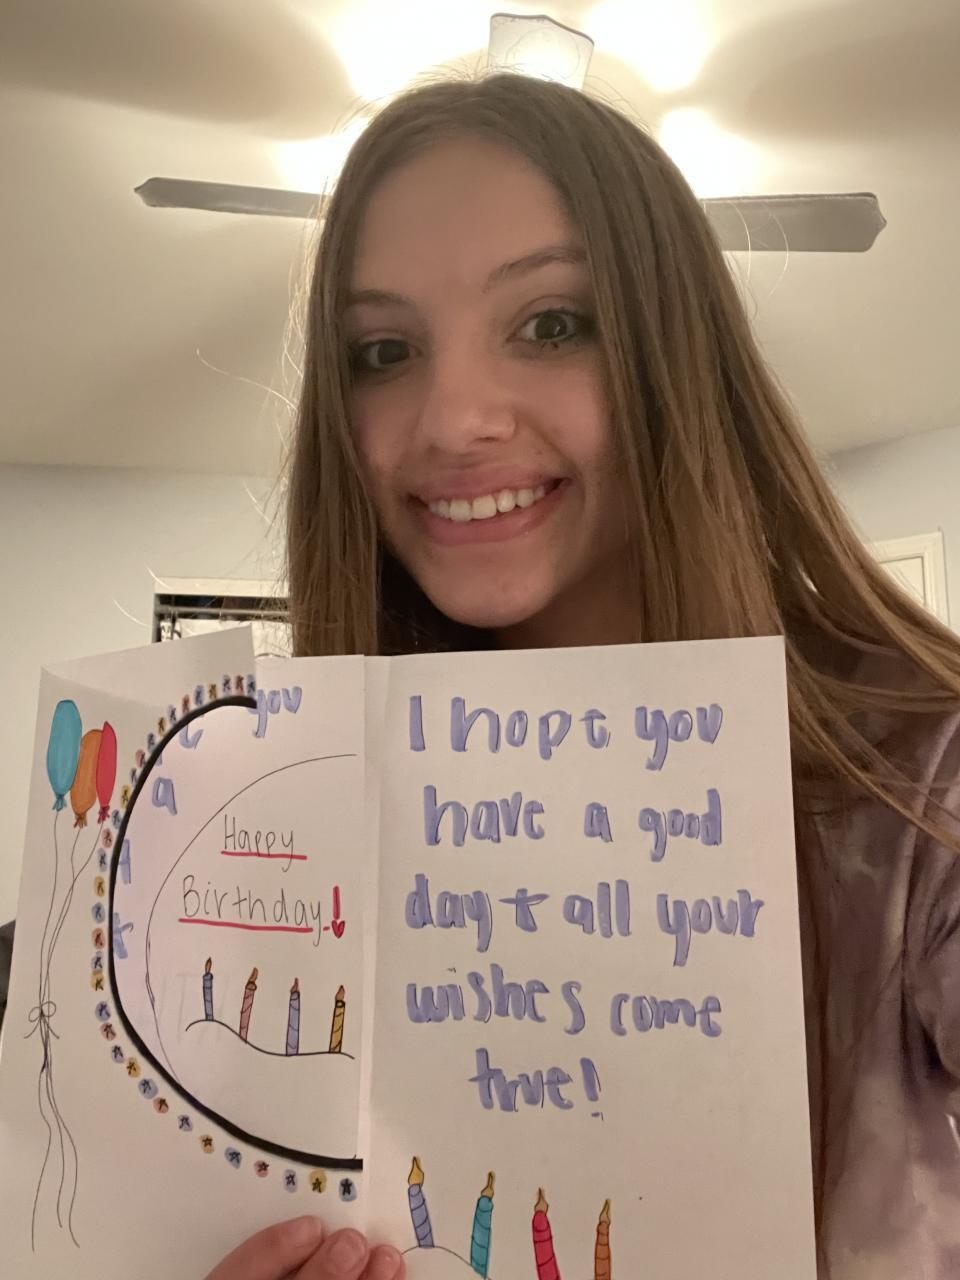 you
a
Happy
Birthday!
I hope you
have a good
day + all your
wishes come
true!